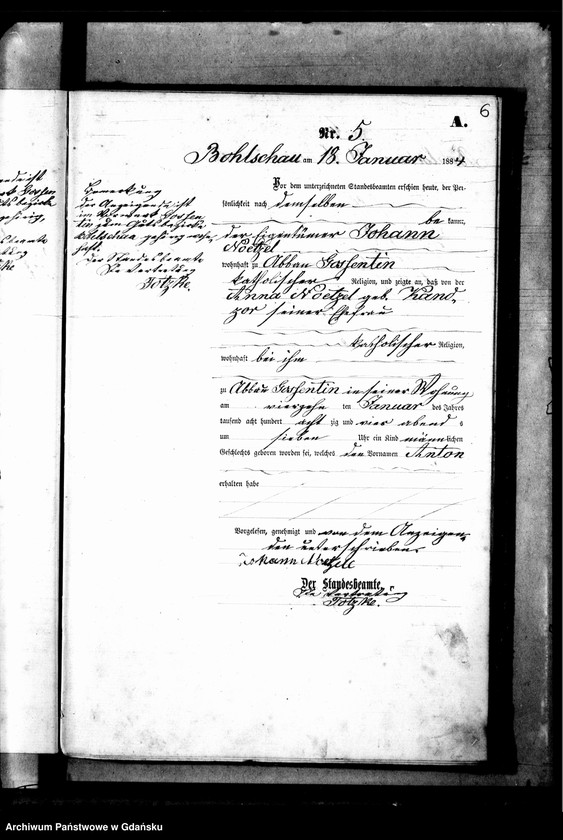 6
A.
Nr. 5.
Bohlschau am 18. Januar 1884
Vor dem unterzeichneten Standesbeamten erschien heute, der Per-
sönlichkeit nach demselben
be kannt,
der Eigentümer Johann
Noetzel
wohnhaft zu Abbau Gossentin
katholischer Religion, und zeigte an, daß von der
Anna Noetzel geb. Kand-
zor seiner Ehefrau
katholischer Religion,
wohnhaft bei ihm
zu Abbau Gossentin in seiner Wohnung
am vierzehn ten Januar des Jahres
tausend acht hundert acht zig und vier abend s
um sieben Uhr ein Kind männlichen
Geschlechts geboren worden sei, welches den Vornamen Anton
erhalten habe
Vorgelesen, genehmigt und von dem Anzeigen-
den unterschrieben
Johann
Der Standesbeamte.
In Vertretung
Totzke.
Bemerkung
der Anzeigende ist
im Gossen-
tin zum Gutsbezirke
gehörig wohn-
haft
Der Standesbeamte
In Vertretung
Totzke.
Archiwum Państwowe w Gdańsku